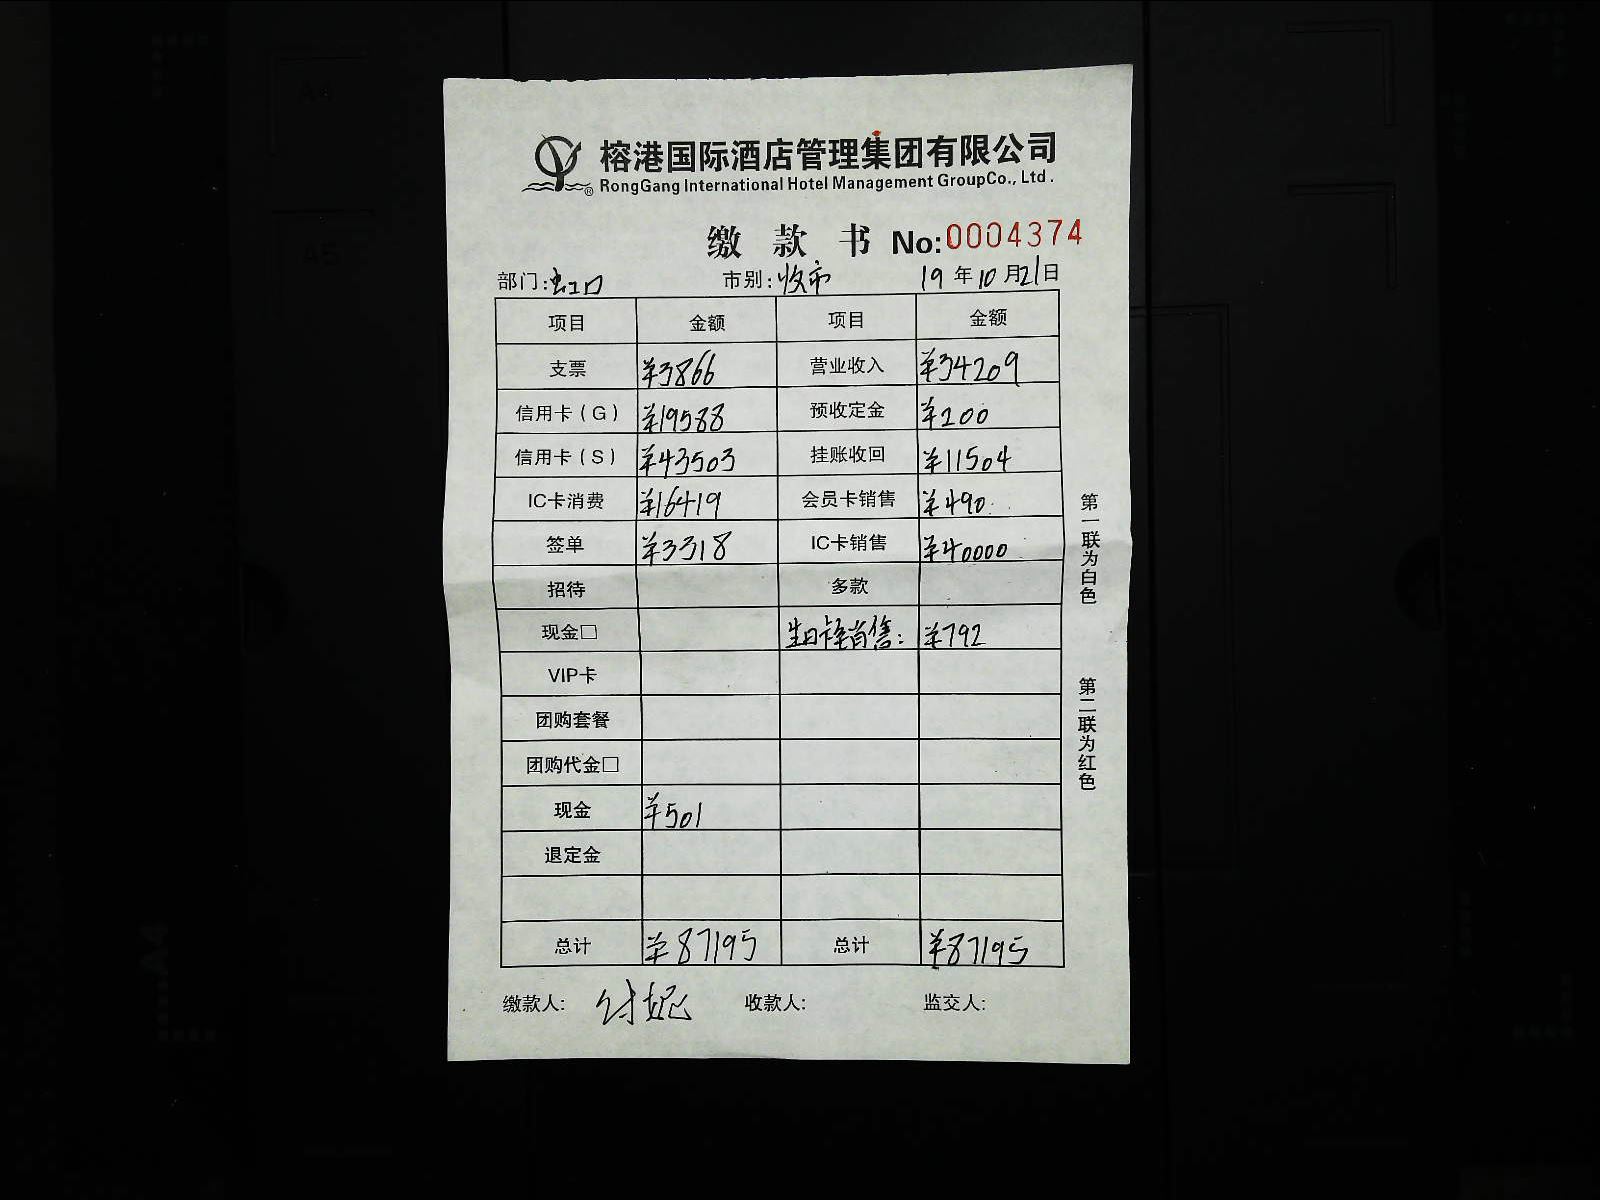 榕港国际酒店管理集团有限公司
® RongGang International Hotel Management GroupCo., Ltd.
缴款书 No:0004374
部门:虹口 市别:收市 19年10月21日
项目 金额 项目 金额
支票 ¥3866 营业收入 ¥34209
信用卡(G) ¥19588 预收定金 ¥200
信用卡(S) ¥43503 挂账收回 ¥11504
IC卡消费 ¥16419 会员卡销售 ¥490
签单 ¥3318 IC卡销售 ¥40000
招待 多款
现金□ 生日卡销售: ¥792
VIP卡
团购套餐
团购代金□
现金 ¥501
退定金
总计 ¥87195 总计 ¥87195
缴款人: 付妮 收款人: 监交人:
第一联为白色
第二联为红色
A4
A5
A4